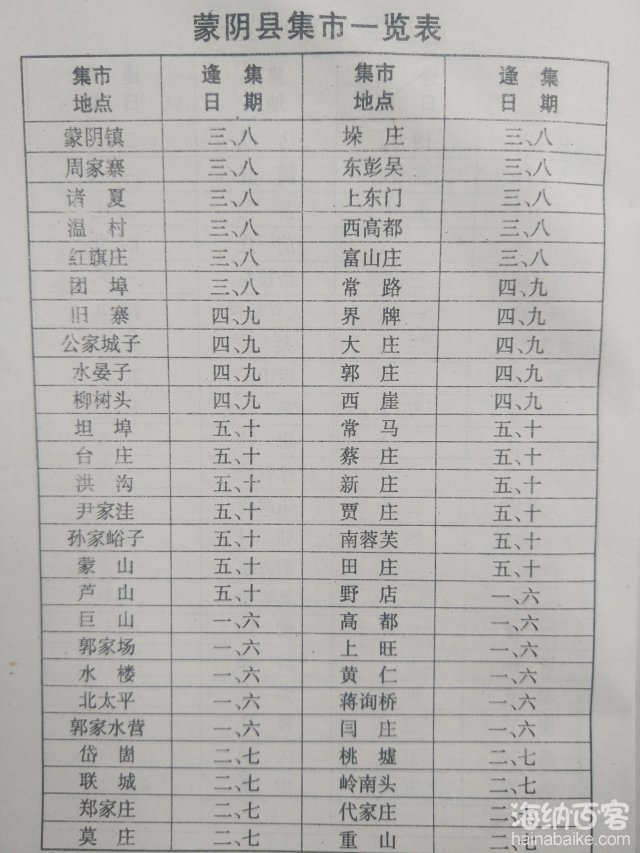 蒙阴县集市一览表
集市地点 逢集日期 集市地点 逢集日期
蒙阴镇 三、八 垛庄 三、八
周家寨 三、八 东彭吴 三、八
诸夏 三、八 上东门 三、八
温村 三、八 西高都 三、八
红旗庄 三、八 富山庄 三、八
团埠 三、八 常路 四、九
旧寨 四、九 界牌 四、九
公家城子 四、九 大庄 四、九
水晏子 四、九 郭庄 四、九
柳树头 四、九 西崖 四、九
坦埠 五、十 常马 五、十
台庄 五、十 蔡庄 五、十
洪沟 五、十 新庄 五、十
尹家洼 五、十 贾庄 五、十
孙家峪子 五、十 南蓉芙 五、十
蒙山 五、十 田庄 五、十
芦山 五、十 野店 一、六
巨山 一、六 高都 一、六
郭家场 一、六 上旺 一、六
水楼 一、六 黄仁 一、六
北太平 一、六 蒋询桥 一、六
郭家水营 一、六 闫庄 一、六
岱崮 二、七 桃墟 二、七
联城 二、七 岭南头 二、七
郑家庄 二、七 代家庄 二、七
莫庄 二、七 重山 二、七
海纳百客
hainabaike.com